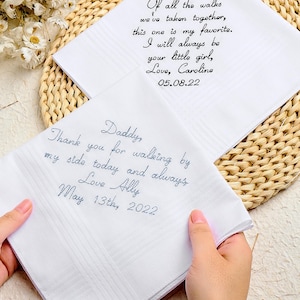 Of all the walks
we've taken together,
this one is my favorite.
I will always be
your little girl,
Love, Caroline
05.08.22
Daddy,
Thank you for walking by
my side today and always
Love Ally
May 13th, 2022